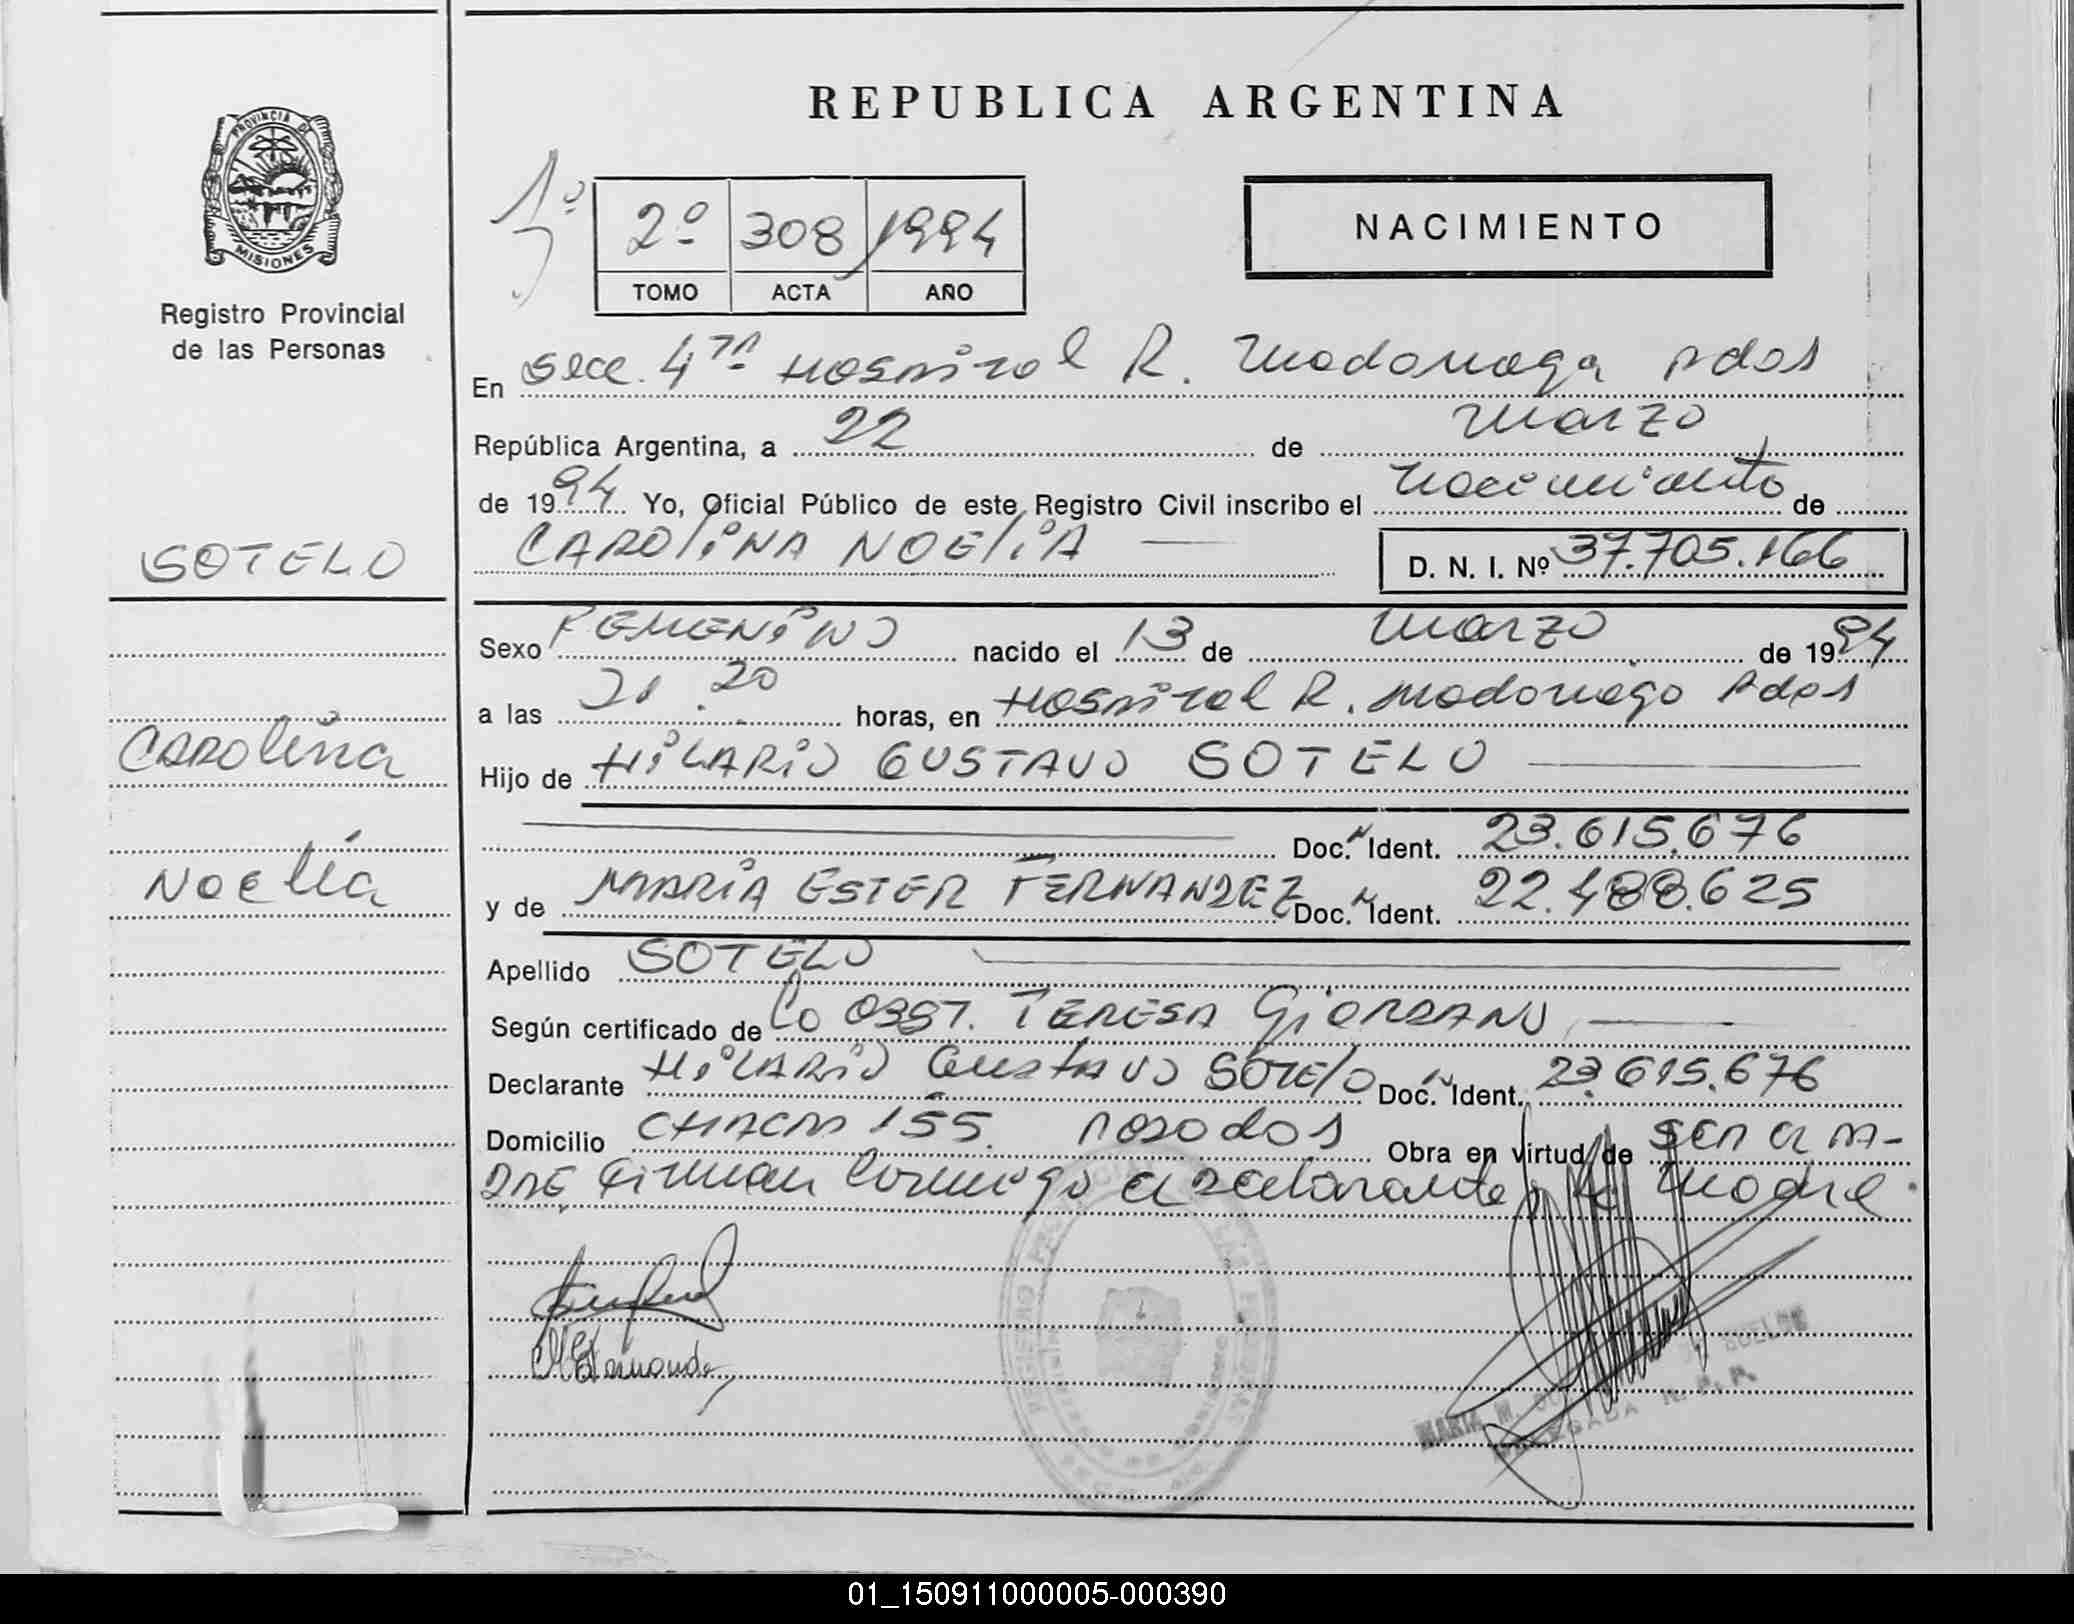 REPUBLICA ARGENTINA
PROVINCIA DE
MISIONES
Registro Provincial
de las Personas
1º
2º 308 1994
TOMO ACTA AÑO
NACIMIENTO
En Secc. 4ta Hospital R. Madariaga Pdas
República Argentina, a 22 de Marzo
de 1994 Yo, Oficial Público de este Registro Civil inscribo el nacimiento de
SOTELO
CAROLINA NOELIA
D. N. I. Nº 37.705.166
Sexo FEMENINO nacido el 13 de Marzo de 1994
a las 21.20 horas, en Hospital R. Madariaga Pdas
Carolina
Hijo de HILARIO GUSTAVO SOTELO
Doc. Ident. 23.615.676
Noelia
y de MARIA ESTER FERNANDEZ Doc. Ident. 22.488.625
Apellido SOTELO
Según certificado de la Obst. TERESA GIORDANO
Declarante HILARIO Gustavo SOTELO Doc. Ident. 23.615.676
Domicilio CHACRA 155 Posadas Obra en virtud de ser el pa-
dre Firman conmigo el declarante y la madre.
MARIA
DELEGADA R. P. P.
01_150911000005-000390